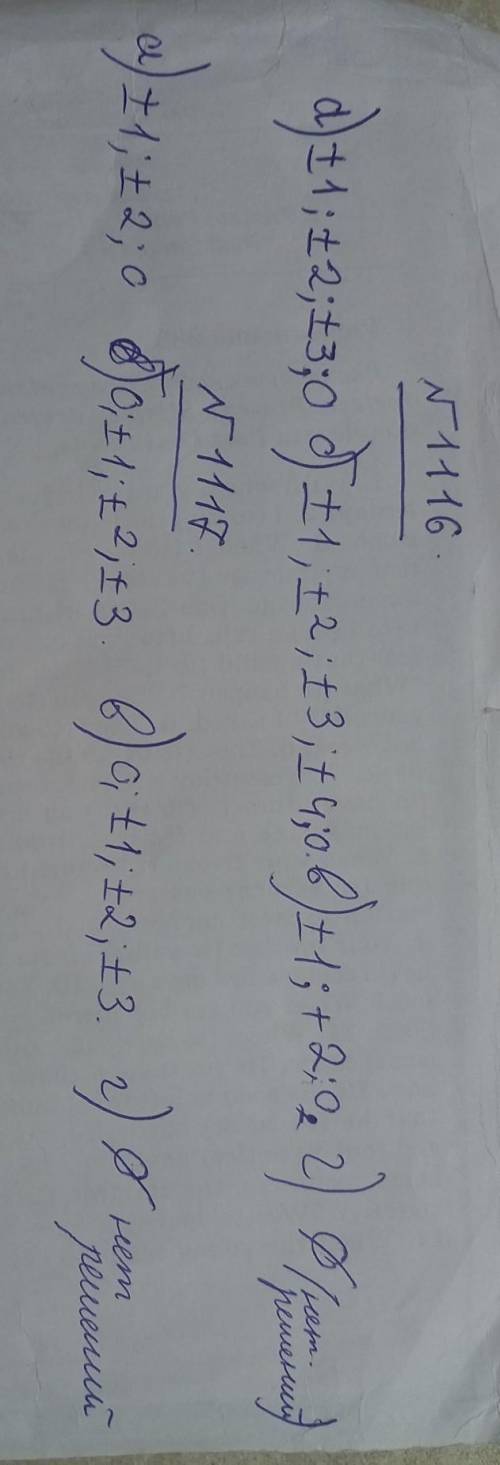 № 1116.
а) ±1; ±2; ±3; 0 б) ±1; ±2; ±3; ±4; 0. в) ±1; +2; 0, г) ∅ (нет. решений)
№ 1117.
а) ±1; ±2; 0 б) 0; ±1; ±2; ±3. в) 0; ±1; ±2; ±3. г) ∅ нет решений